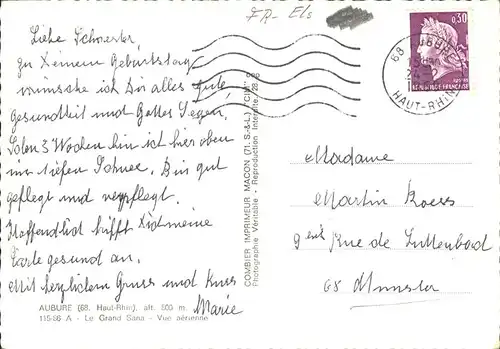 FR-Els
Liebe Schwester,
zu Deinem Geburtstag
wünsche ich Dir alles gute,
gesundheit und Gottes Segen.
Schon 3 Wochen bin ich hier oben
im tiefen Schnee. Bin gut
gepflegt und verpflegt.
Hoffendlich trifft Dich meine
Karte gesund an.
Mit herzlichem Gruss und Kuss
Marie
AUBURE (68. Haut-Rhin), alt. 800 m.
115-86 A - Le Grand Sana - Vue aérienne
COMBIER IMPRIMEUR MACON (71. S.-&-L.) "CIM"
Photographie Véritable - Reproduction Interdite
0,30
REPUBLIQUE FRANÇAISE
68 AUBURE
HAUT-RHIN
Madame
Martin
Rue de Luttenbach
68 Munster